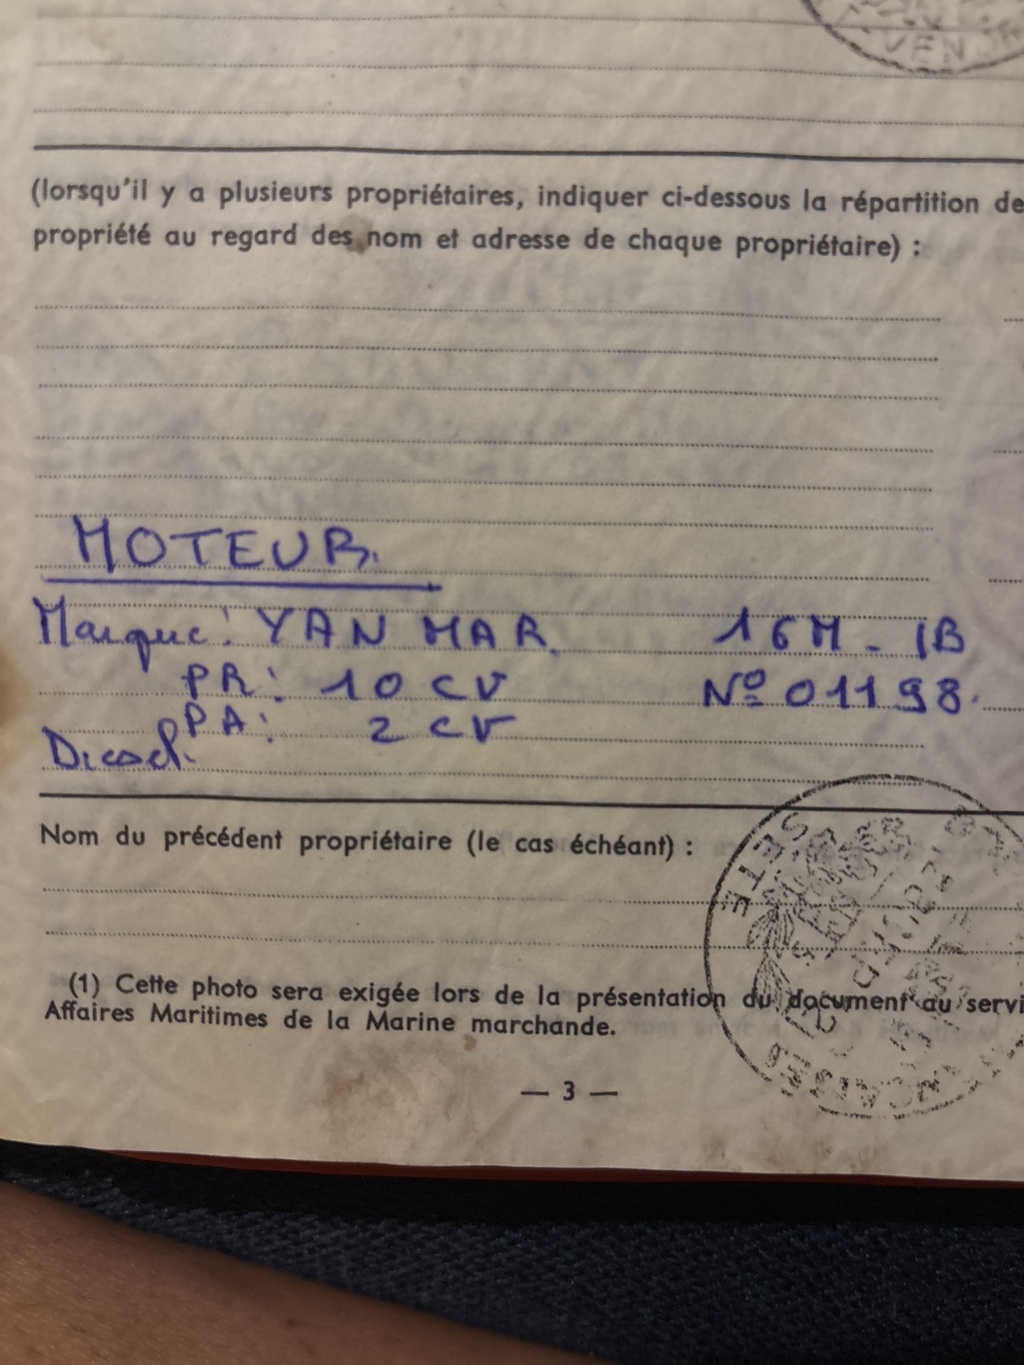 VEN
(lorsqu'il y a plusieurs propriétaires, indiquer ci-dessous la répartition de
propriété au regard des nom et adresse de chaque propriétaire) :
MOTEUR.
Marque: YANMAR 1GM-1B
PR: 10 CV Nº 01198.
PA: 2 CV
Diesel.
Nom du précédent propriétaire (le cas échéant) :
SETE
(1) Cette photo sera exigée lors de la présentation du document au servi
Affaires Maritimes de la Marine marchande.
— 3 —